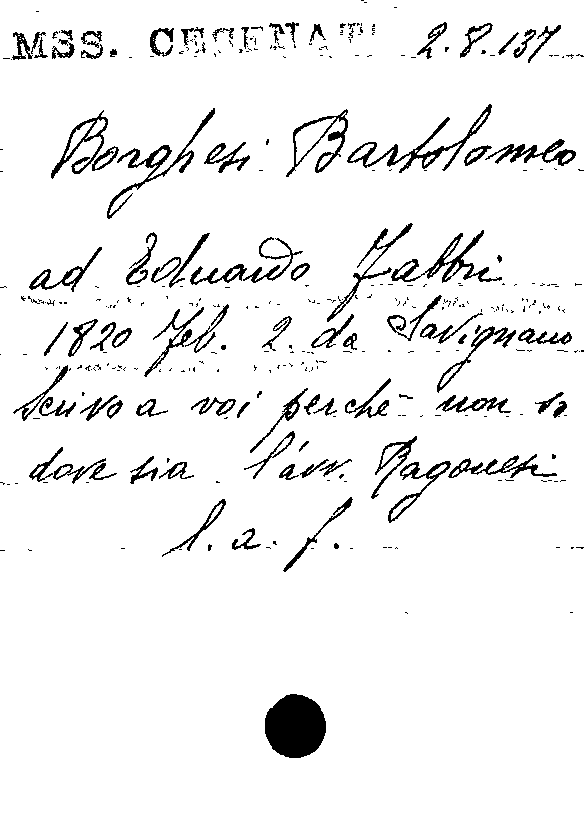 MSS. CESENATI 2.8.137
Borghesi Bartolomeo
ad Eduardo Fabbri
1820 Feb. 2. da Savignano
Scrivo a voi perchè non so
dove sia l'avv. Ragonesi
l. a. f.